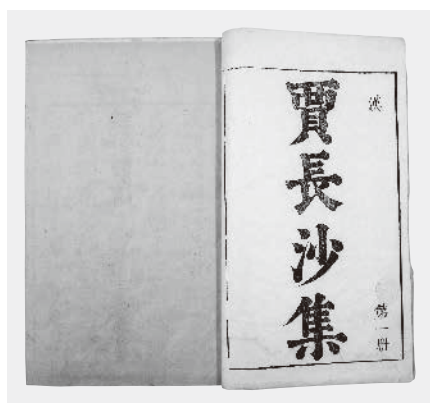 漢
賈長沙集
第一冊